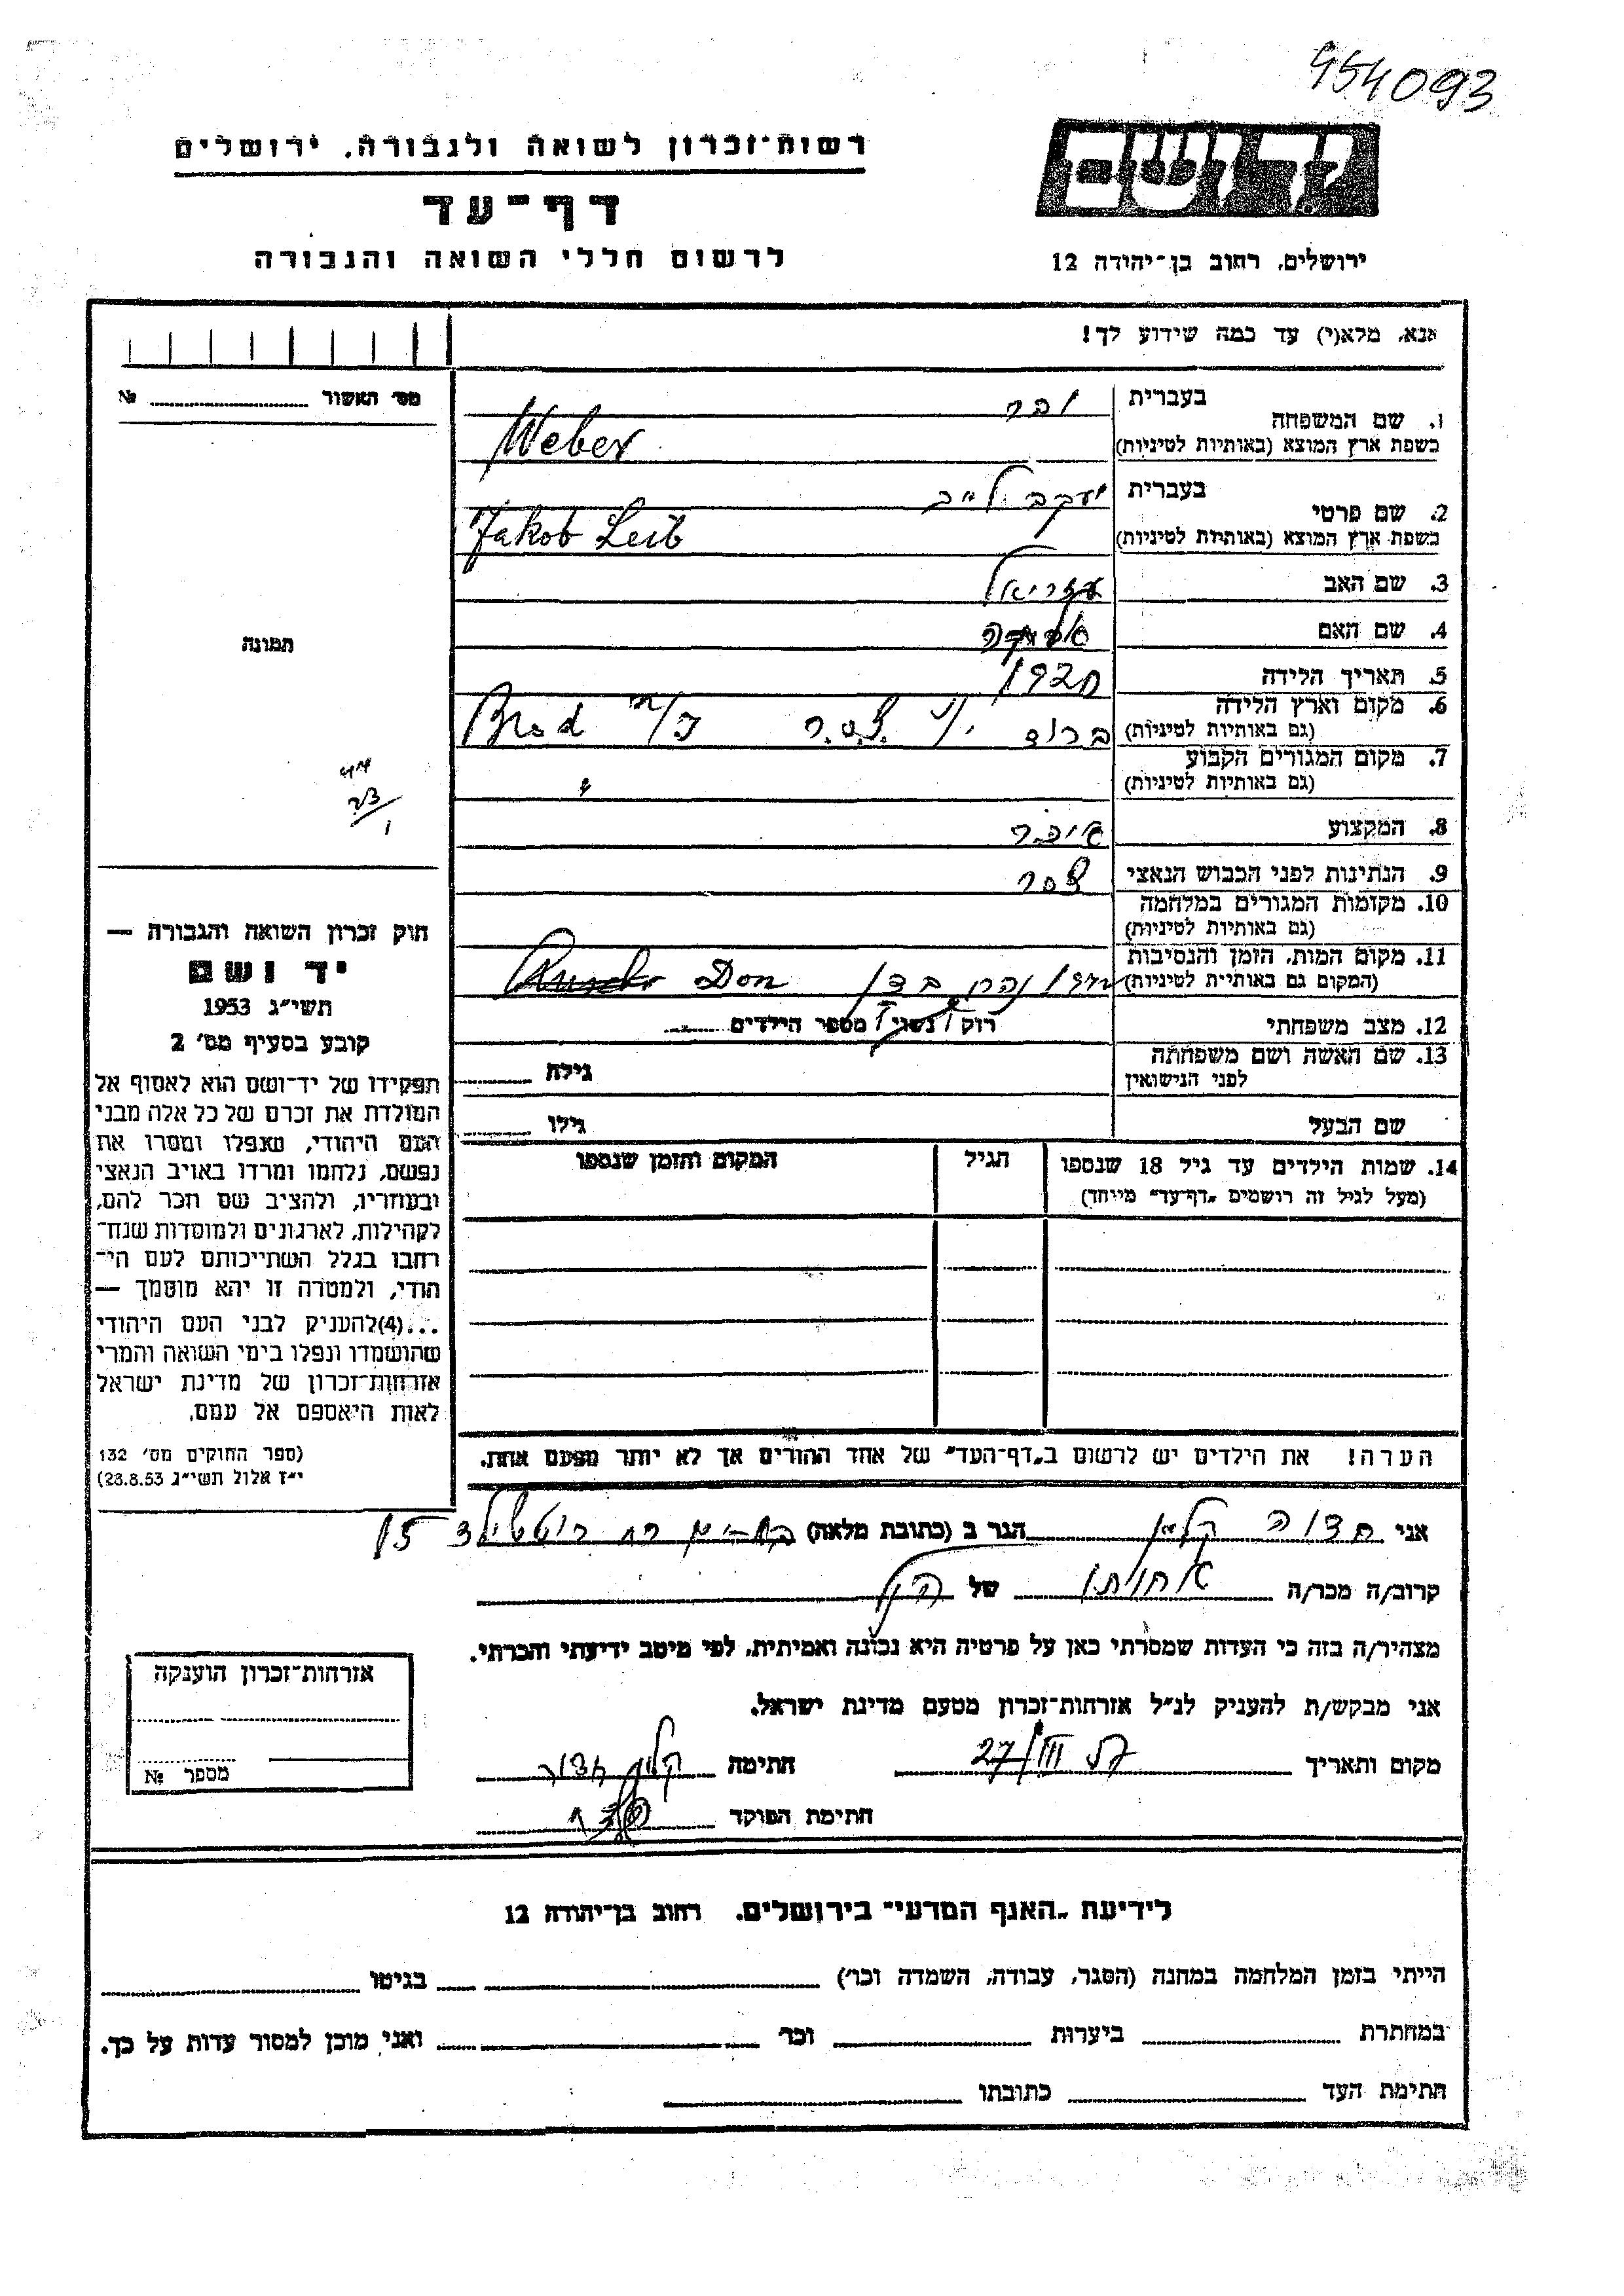 954093
רשות-זכרון לשואה ולגבורה. ירושלים
יד ושם
דף-עד
לרשום חללי השואה והגבורה
ירושלים. רחוב בן-יהודה 12
אנא. מלא(י) עד כמה שידוע לך!
מס' האשור № 
1. שם המשפחה
בעברית ובר
בשפת ארץ המוצא (באותיות לטיניות) Weber
2. שם פרטי
בעברית יעקב לייב
בשפת ארץ המוצא (באותיות לטיניות) Jakob Leib
3. שם האב עזריאל
4. שם האם
5. תאריך הלידה
6. מקום וארץ הלידה
(גם באותיות לטיניות) ברוד צ.ס.ר. Brod
7. מקום המגורים הקבוע
(גם באותיות לטיניות) "
8. המקצוע איכר
9. הנתינות לפני הכבוש הנאצי צסר
10. מקומות המגורים במלחמה
(גם באותיות לטיניות)
11. מקום המות. הזמן והנסיבות
(המקום גם באותיית לטיניות) נהר Don
12. מצב משפחתי רוק / נשוי / מספר הילדים
13. שם האשה ושם משפחתה
לפני הנישואין גילה
שם הבעל גילו
14. שמות הילדים עד גיל 18 שנספו הגיל המקום והזמן שנספו
(מעל לגיל זה רושמים „דף-עד" מייחד)
הערה! את הילדים יש לרשום ב„דף-העד" של אחד ההורים אך לא יותר מפעם אחת.
תמונה
חוק זכרון השואה והגבורה —
יד ושם
תשי"ג 1953
קובע בסעיף מס' 2
תפקידו של יד-ושם הוא לאסוף אל
המולדת את זכרם של כל אלה מבני
העם היהודי, שנפלו ומסרו את
נפשם, נלחמו ומרדו באויב הנאצי
ובעוזריו, ולהציב שם וזכר להם,
לקהילות, לארגונים ולמוסדות שנח-
רבו בגלל השתייכותם לעם הי-
הודי, ולמטרה זו יהא מוסמך —
...(4)להעניק לבני העם היהודי
שהושמדו ונפלו בימי השואה והמרי
אזרחות-זכרון של מדינת ישראל
לאות היאספם אל עמם.
(ספר החוקים מס' 132
י"ז אלול תשי"ג 23.8.53)
אני חדוה קליין הגר ב (כתובת מלאה) רוטשילד 15
קרוב/ה מכר/ה אחותו של הנ"ל
מצהיר/ה בזה כי העדות שמסרתי כאן על פרטיה היא נכונה ואמיתית, לפי מיטב ידיעתי והכרתי.
אני מבקש/ת להעניק לנ"ל אזרחות-זכרון מטעם מדינת ישראל.
מקום ותאריך 27/III חתימה קליין חדוה
חתימת הפוקד
אזרחות-זכרון הוענקה
מספר №
לידיעת „האגף המדעי" בירושלים. רחוב בן-יהודה 12
הייתי בזמן המלחמה במחנה (הסגר, עבודה, השמדה וכר') בגיטו
במחתרת ביערות וכר' ואני מוכן למסור עדות על כך.
חתימת העד כתובתו